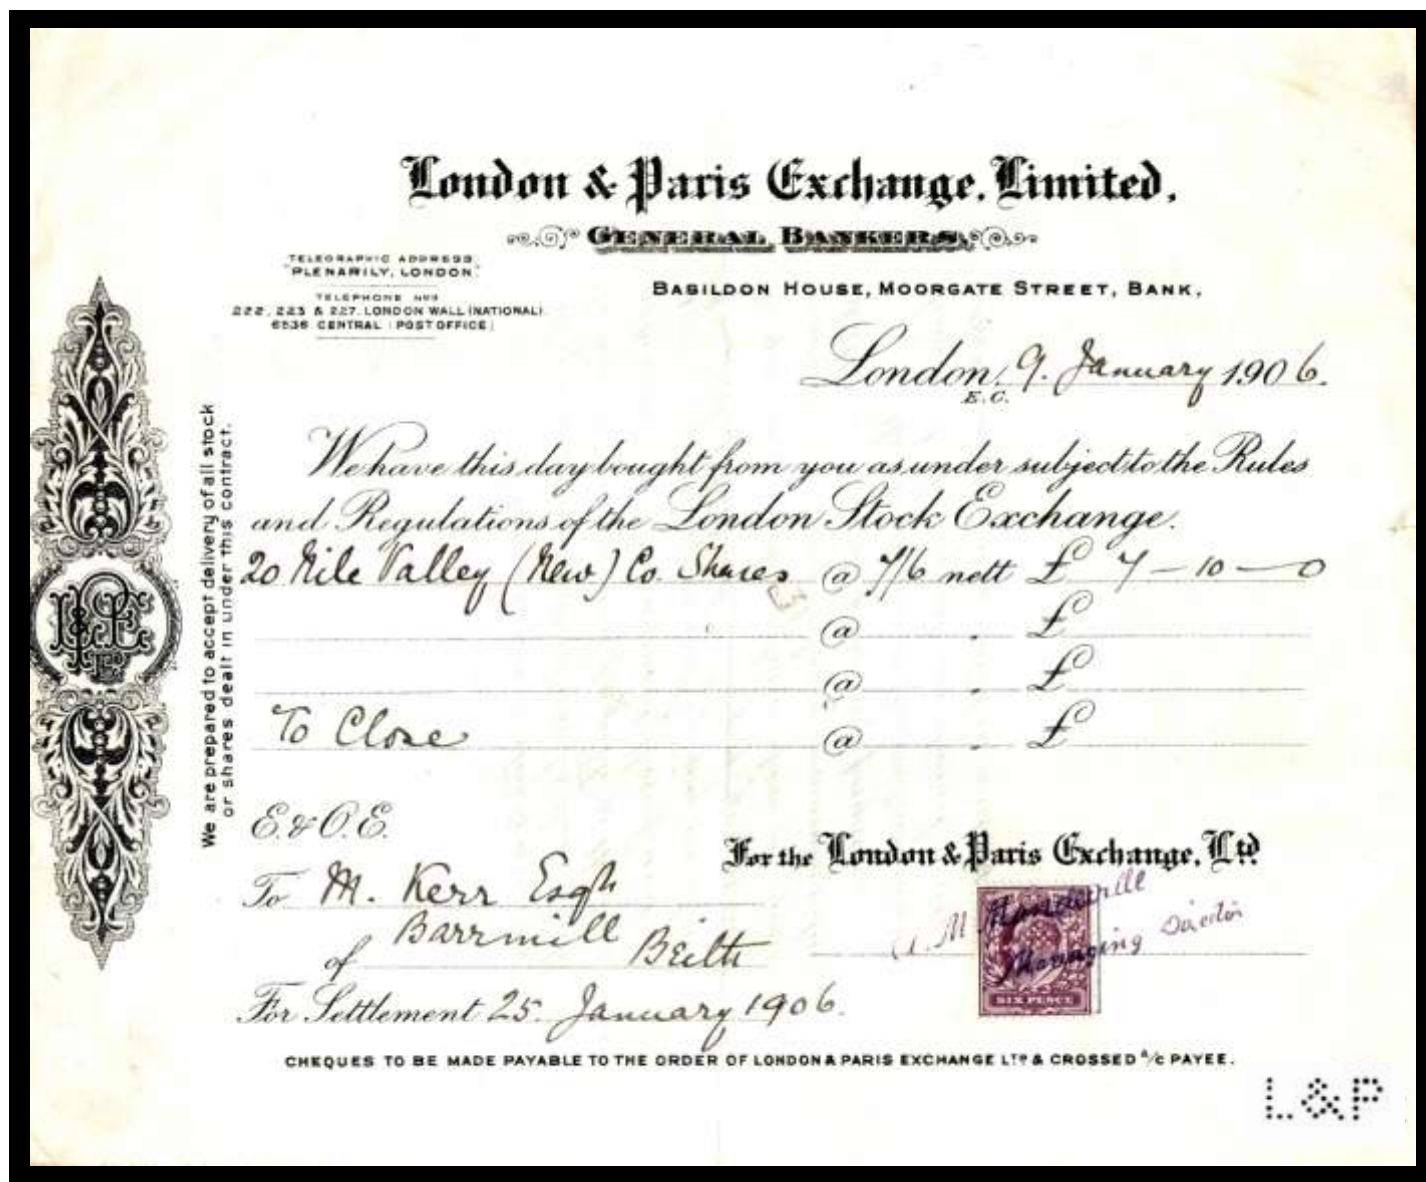 London & Paris Exchange, Limited,
GENERAL BANKERS,
TELEGRAPHIC ADDRESS,
"PLENARILY, LONDON."
TELEPHONE Nos
222, 223 & 227, LONDON WALL (NATIONAL)
6536 CENTRAL (POST OFFICE)
BASILDON HOUSE, MOORGATE STREET, BANK,
London, 9. January 1906.
E.C.
We have this day bought from you as under subject to the Rules
and Regulations of the London Stock Exchange.
20 Nile Valley (New) Co. Shares @ 7/6 nett £ 7 - 10 - 0
@ £
@ £
To Close @ £
We are prepared to accept delivery of all stock
or shares dealt in under this contract.
E. & O. E.
For the London & Paris Exchange, Ltd
To M. Kerr Esqr
of Barrmill Beith
Managing Director
SIX PENCE
For Settlement 25. January 1906.
CHEQUES TO BE MADE PAYABLE TO THE ORDER OF LONDON & PARIS EXCHANGE LTD & CROSSED A/c PAYEE.
L&P